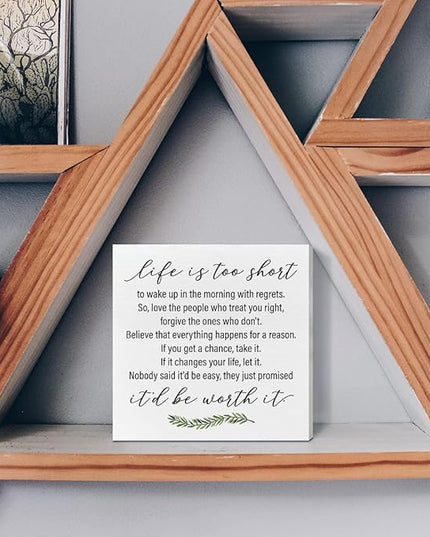 life is too short
to wake up in the morning with regrets.
So, love the people who treat you right,
forgive the ones who don't.
Believe that everything happens for a reason.
If you get a chance, take it.
If it changes your life, let it.
Nobody said it'd be easy, they just promised
it'd be worth it.